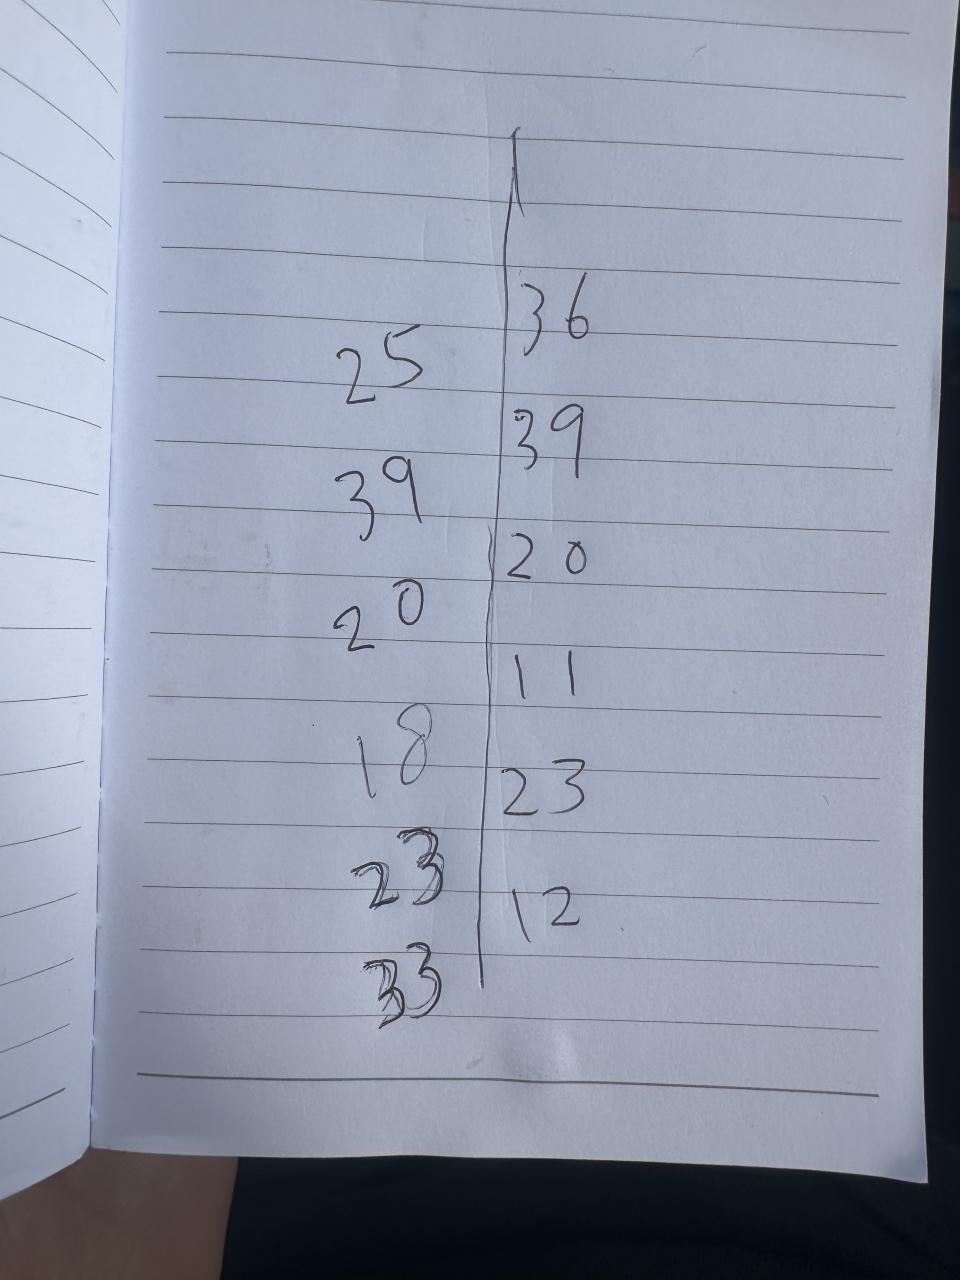 25 36
39 39
20 20
18 11
23 23
33 12